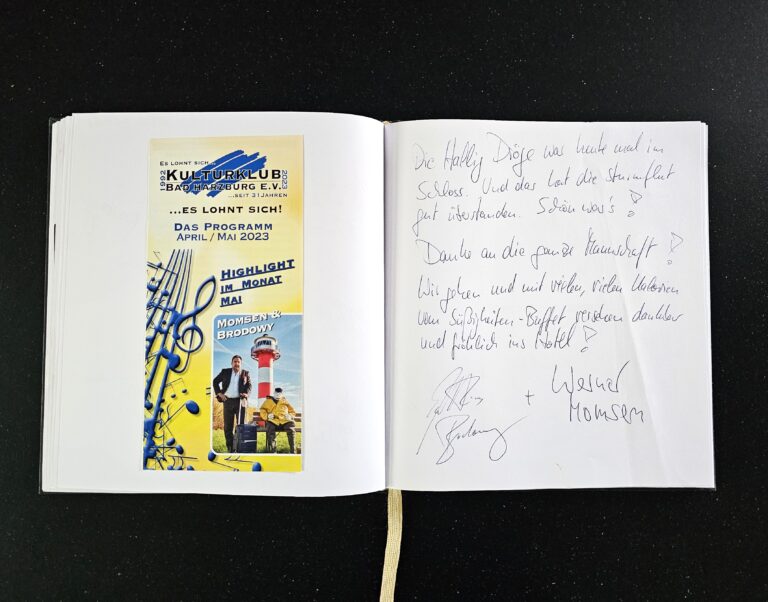 Es lohnt sich...
1992
Kulturklub
2023
Bad Harzburg e.V.
...seit 31 Jahren
...es lohnt sich!
Das Programm
April / Mai 2023
Highlight
im Monat
Mai
Momsen &
Brodowy
Die Hallig Dröge war heute mal im
Schloss. Und das hat die Sturmflut
gut überstanden. Schön war's!
Danke an die ganze Mannschaft!
Wir gehen und mit vielen, vielen Kalorien
vom Süßigkeiten-Buffet versehen dankbar
und fröhlich ins Hotel!
Brodowy
+ Werner
Momsen